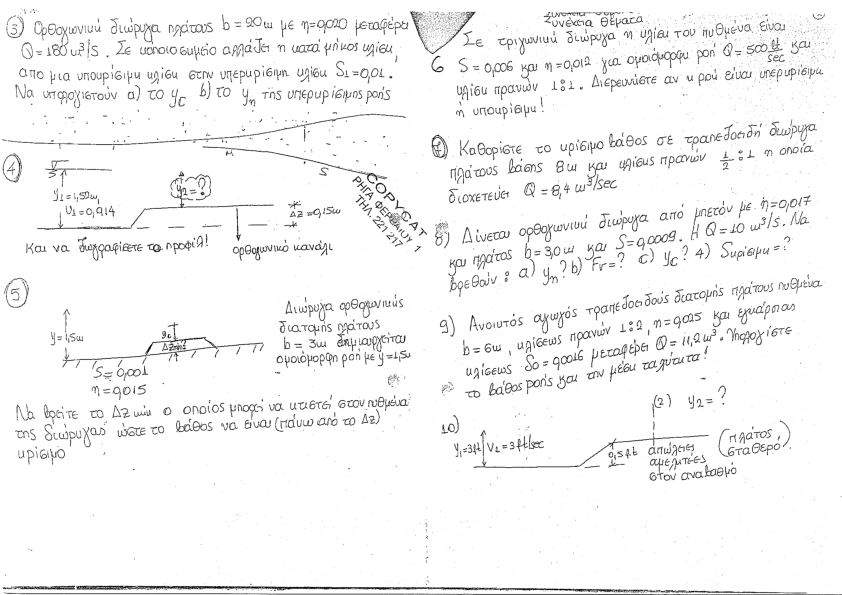 3) Ορθογωνική διώρυγα πλάτους b = 20m με η=0,020 μεταφέρει
Q = 180 m³/s. Σε κάποιο σημείο αλλάζει η κατά μήκος κλίση,
από μια υποκρίσιμη κλίση στην υπερκρίσιμη κλίση S₁=0,01.
Να υπολογιστούν a) το yc b) το yη της υπερκρίσιμης ροής
M
S
4)
y₁=1,50m
U₁=0,914
y₂=?
ΔZ=0,15m
Και να ζωγραφίσετε το προφίλ!
ορθογωνικό κανάλι
COPYCAT
ΡΗΓΑ ΦΕΡΡΑΙΟΥ 1
ΤΗΛ. 221 217
5
y=1,5m
yc
ΔZmin
S=0,001
η=0,015
Διώρυγα ορθογωνικής
διατομής πλάτους
b = 3m δημιουργείται
ομοιόμορφη ροή με y=1,5m
Να βρείτε το ΔZ min ο οποίος μπορεί να κτιστεί στον πυθμένα
της διώρυγας ώστε το βάθος να είναι (πάνω από το ΔZ)
κρίσιμο
Συνέχεια θέματα
6 Σε τριγωνική διώρυγα η κλίση του πυθμένα είναι
S = 0,006 και η=0,012 για ομοιόμορφη ροή Q = 500 ft/sec και
κλίση πρανών 1:1. Διερευνίστε αν η ροή είναι υπερκρίσιμη
ή υποκρίσιμη!
7 Καθορίστε το κρίσιμο βάθος σε τραπεζοειδή διώρυγα
πλάτους βάσης 8m και κλίσης πρανών 1/2:1 η οποία
διοχετεύει Q = 8,4 m³/sec
8) Δίνεται ορθογωνική διώρυγα από μπετόν με η=0,017
και πλάτος b=3,0m και S=0,0009. Η Q = 10 m³/s. Να
βρεθούν: a) yη? b) Fr=? c) yc? 4) Sκρίσιμη=?
9) Ανοικτός αγωγός τραπεζοειδούς διατομής πλάτους πυθμένα
b=6m, κλίσεως πρανών 1:2, η=0,025 και εγκάρσιας
κλίσεως So=0,0016 μεταφέρει Q=11,2m³. Υπολογίστε
το βάθος ροής και την μέση ταχύτητα!
10)
y₁=3ft
V₁=3ft/sec
0,5ft
(2) y₂=?
απώλειες
αμελητέες
στον αναβαθμό
(πλάτος
σταθερό)